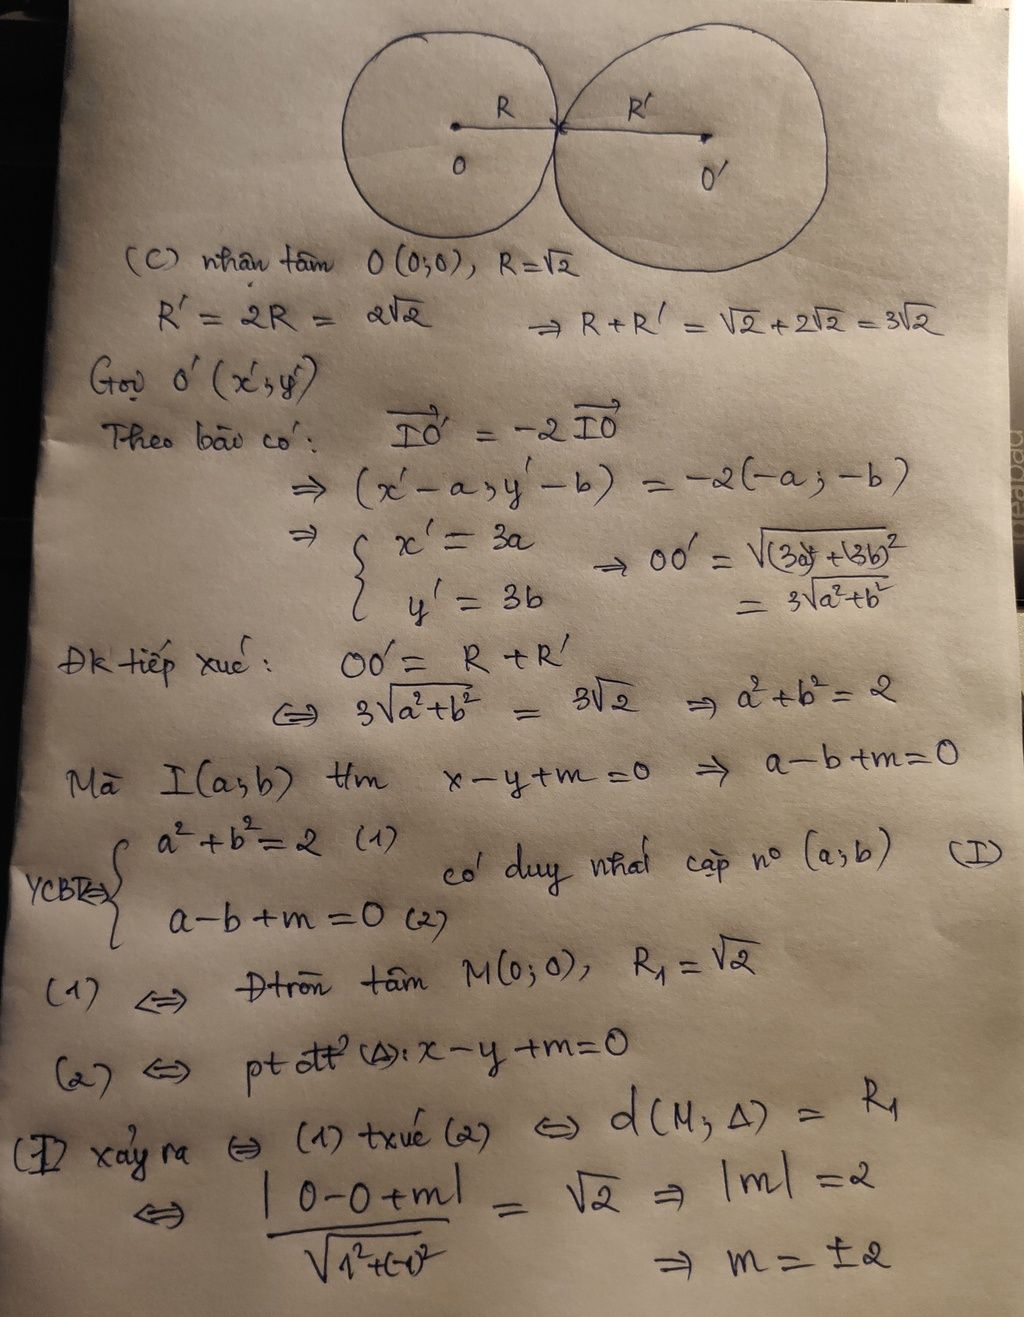 R R'
O O'
(C) nhận tâm O(0;0), R = √2
R' = 2R = 2√2 ⇒ R + R' = √2 + 2√2 = 3√2
Gọi O'(x';y')
Theo bào có: IO' = -2 IO
⇒ (x'-a; y'-b) = -2(-a; -b)
⇒ { x' = 3a
y' = 3b
⇒ OO' = √(3a)²+(3b)²
= 3√a²+b²
Đk tiếp xuć: OO' = R + R'
⇔ 3√a²+b² = 3√2 ⇒ a²+b² = 2
Mà I(a;b) t/m x-y+m=0 ⇒ a-b+m=0
YCBT⇔ { a²+b²=2 (1)
a-b+m=0 (2)
có duy nhất cặp n° (a;b) (I)
(1) ⇔ Đtròn tâm M(0;0), R₁ = √2
(2) ⇔ pt đt (Δ): x-y+m=0
(I) xảy ra ⇔ (1) txuć (2) ⇔ d(M; Δ) = R₁
⇔ |0-0+m| / √1²+(-1)² = √2 ⇒ |m| = 2
⇒ m = ±2
ideapad